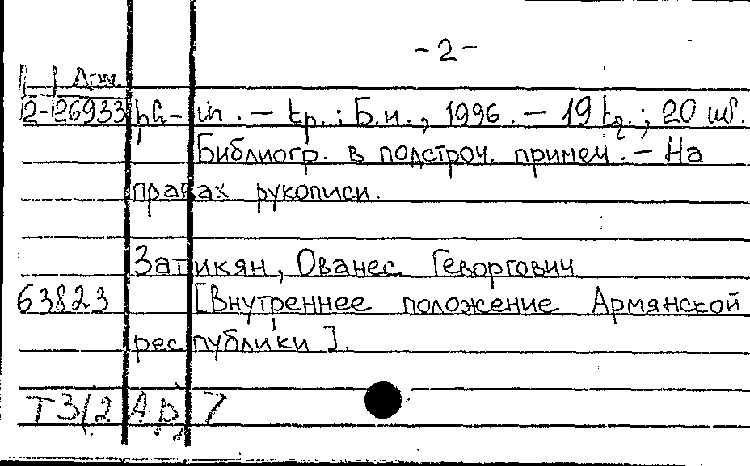 -2-
Арм.
2-26933 իհ-տ. — Եր. : Б.и., 1996. — 19 էջ ; 20 սմ.
Библиогр. в подстроч. примеч. — На
правах рукописи.
Затикян, Ованес Геворгович
63823 [Внутреннее положение Армянской
республики].
Т3(2Ар)7